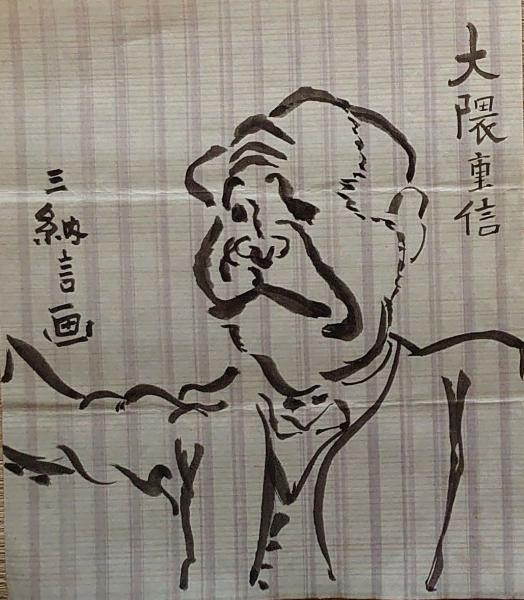 大隈重信
三納言画